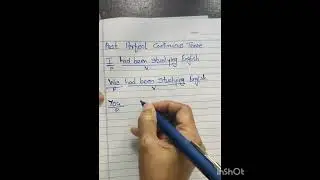 Past Perfect Continuous Tense
I had been studying English
P. V.
We had been studying English
P. V.
You
P.
InShOt